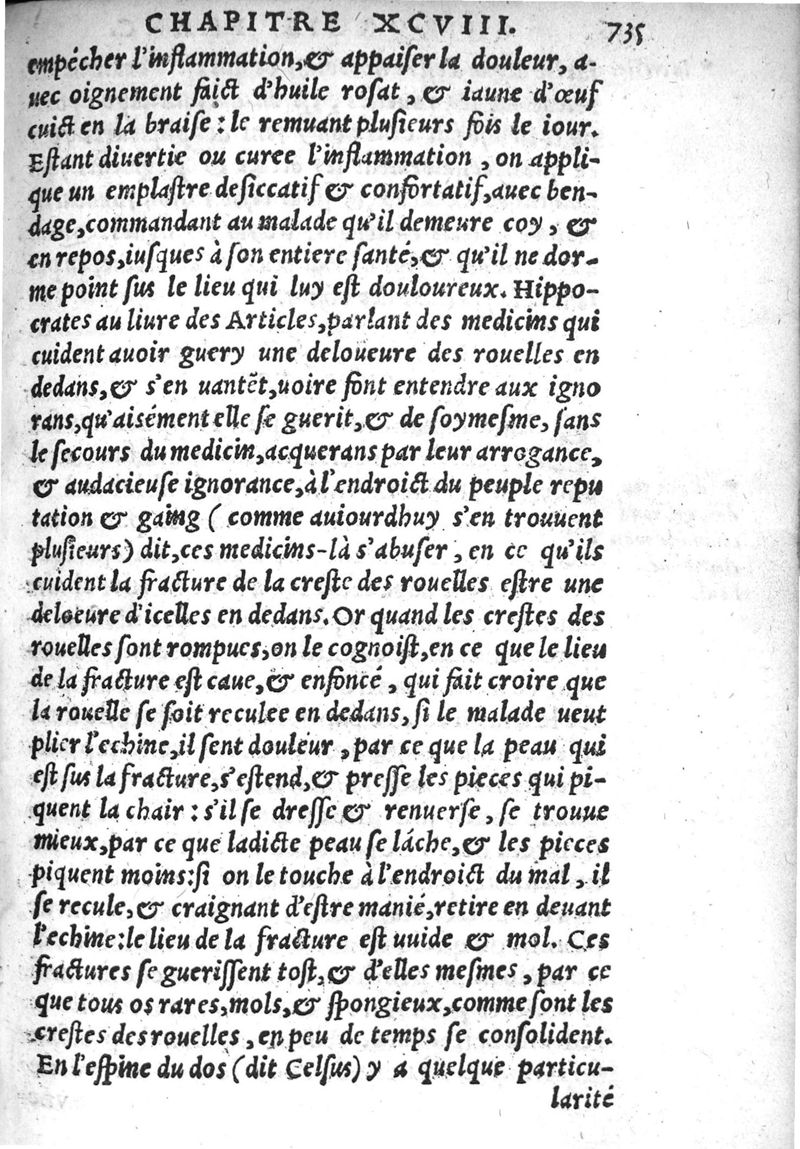 CHAPITRE XCVIII. 735
empécher l'inflammation, & appaiser la douleur, a-
uec oignement faict d'huile rosat, & iaune d'œuf
cuict en la braise : le remuant plusieurs fois le iour.
Estant diuertie ou curee l'inflammation, on appli-
que un emplastre desiccatif & confortatif, auec ben-
dage, commandant au malade qu'il demeure coy, &
en repos, iusques à son entiere santé, & qu'il ne dor-
me point sus le lieu qui luy est douloureux. Hippo-
crates au liure des Articles, parlant des medicins qui
cuident auoir guery une deloueure des rouelles en
dedans, & s'en uantẽt, uoire font entendre aux igno
rans, qu'aisément elle se guerit, & de soymesme, sans
le secours du medicin, acquerans par leur arrogance,
& audacieuse ignorance, à l'endroict du peuple repu
tation & gaing ( comme auiourdhuy s'en trouuent
plusieurs) dit, ces medicins-là s'abuser, en ce qu'ils
cuident la fracture de la creste des rouelles estre une
deloeure d'icelles en dedans. Or quand les crestes des
rouelles sont rompues, on le cognoist, en ce que le lieu
de la fracture est caue, & enfoncé, qui fait croire que
la rouelle se soit reculee en dedans, si le malade ueut
plier l'echine, il sent douleur, par ce que la peau qui
est sus la fracture, s'estend, & presse les pieces qui pi-
quent la chair : s'il se dresse & renuerse, se trouue
mieux, par ce que ladicte peau se láche, & les pieces
piquent moins: si on le touche à l'endroict du mal, il
se recule, & craignant d'estre manié, retire en deuant
l'echine: le lieu de la fracture est uuide & mol. Ces
fractures se guerissent tost, & d'elles mesmes, par ce
que tous os rares, mols, & spongieux, comme sont les
crestes des rouelles, en peu de temps se consolident.
En l'espine du dos (dit Celsus) y a quelque particu-
larité